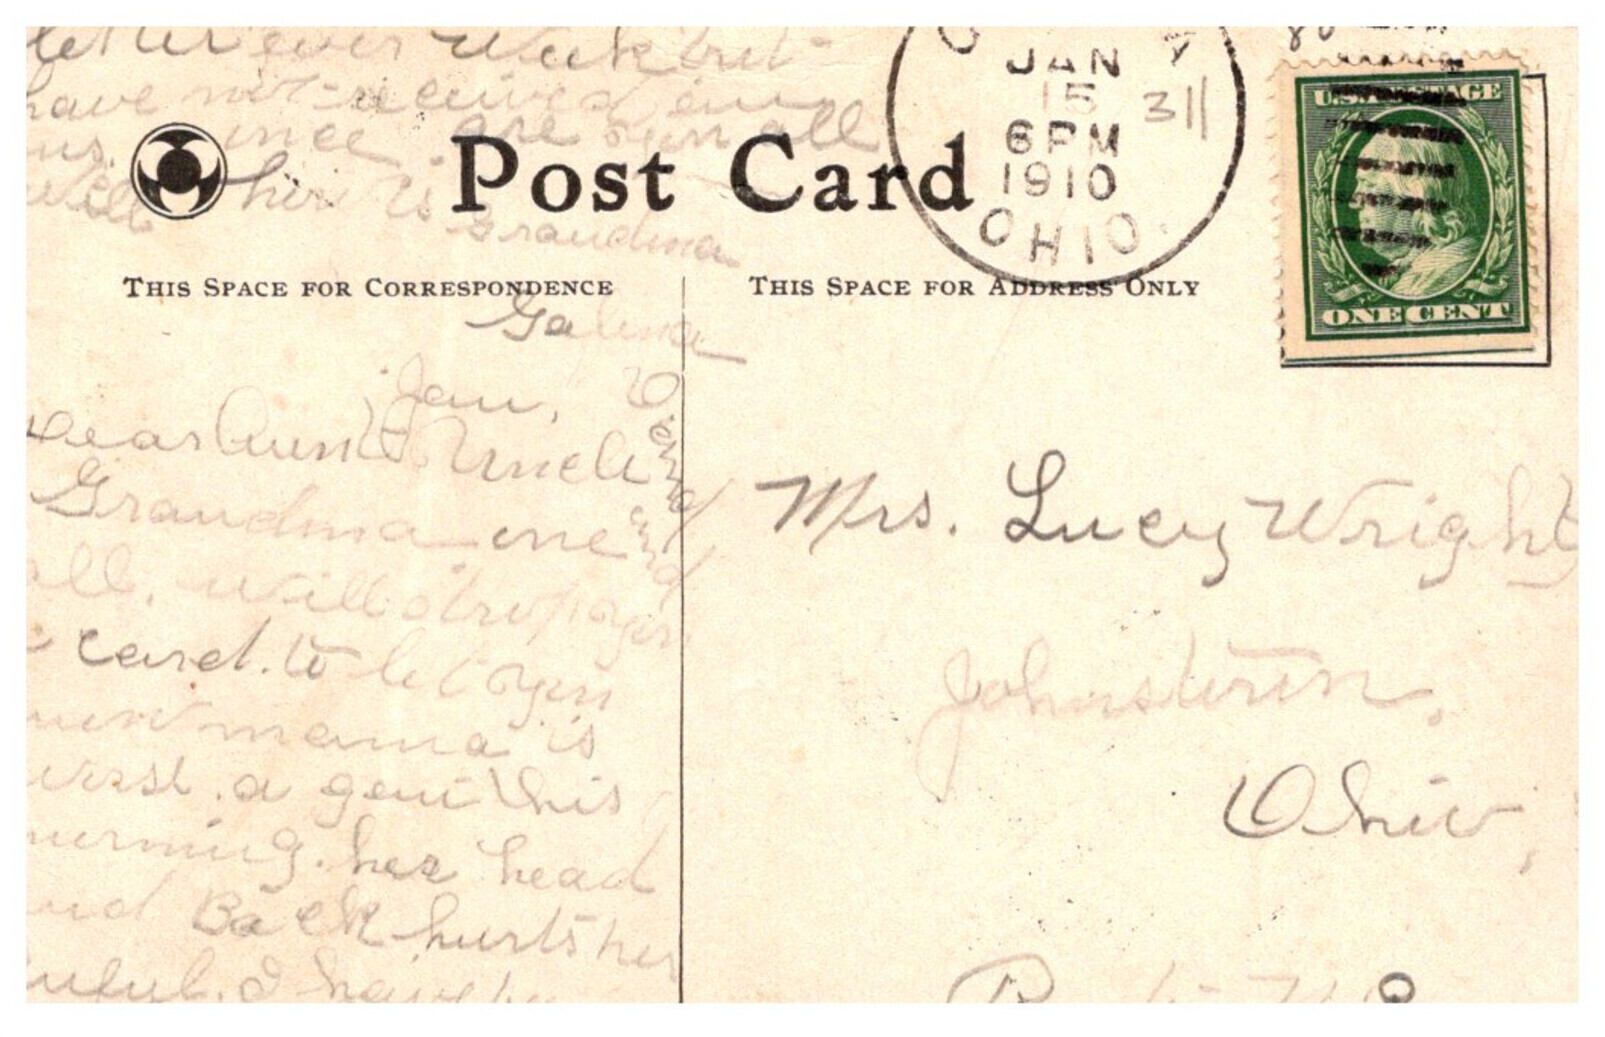 letter ever week but
have not received enny
ens. ince are you all
well her is
Grandma
JAN
15
6 PM
1910
OHIO.
311
U.S. POSTAGE
ONE CENT
Post Card
THIS SPACE FOR CORRESPONDENCE
THIS SPACE FOR ADDRESS ONLY
Galena
Jan,
Dear Aunt & Uncle and
Grandma one and
all. will drop you
a card. to let you
now mama is
werst. a gein this
morning. her head
and Back hurts her
I have
Mrs. Lucy Wright
Johnstown,
Ohio,